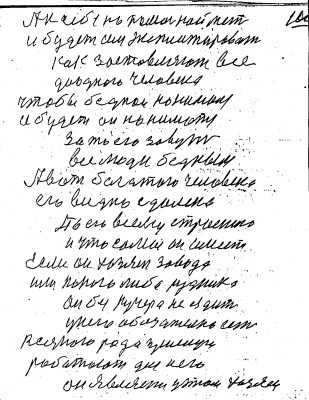 А к себе на помощ наймет
и будет сам эксплотировать
как заставляют все
одного человека
чтобы бедной понимал
и будет он понимать
За то его зовут
все люди бедным
А вот богатого человека
его видно с далека
По его всему строению
и что самой он имеет
Если он хозяин завода
или какого либо рудника
он без кучера не ездит
у него обязательно есть
всякого рода
работают для него
он является у этом хозяин